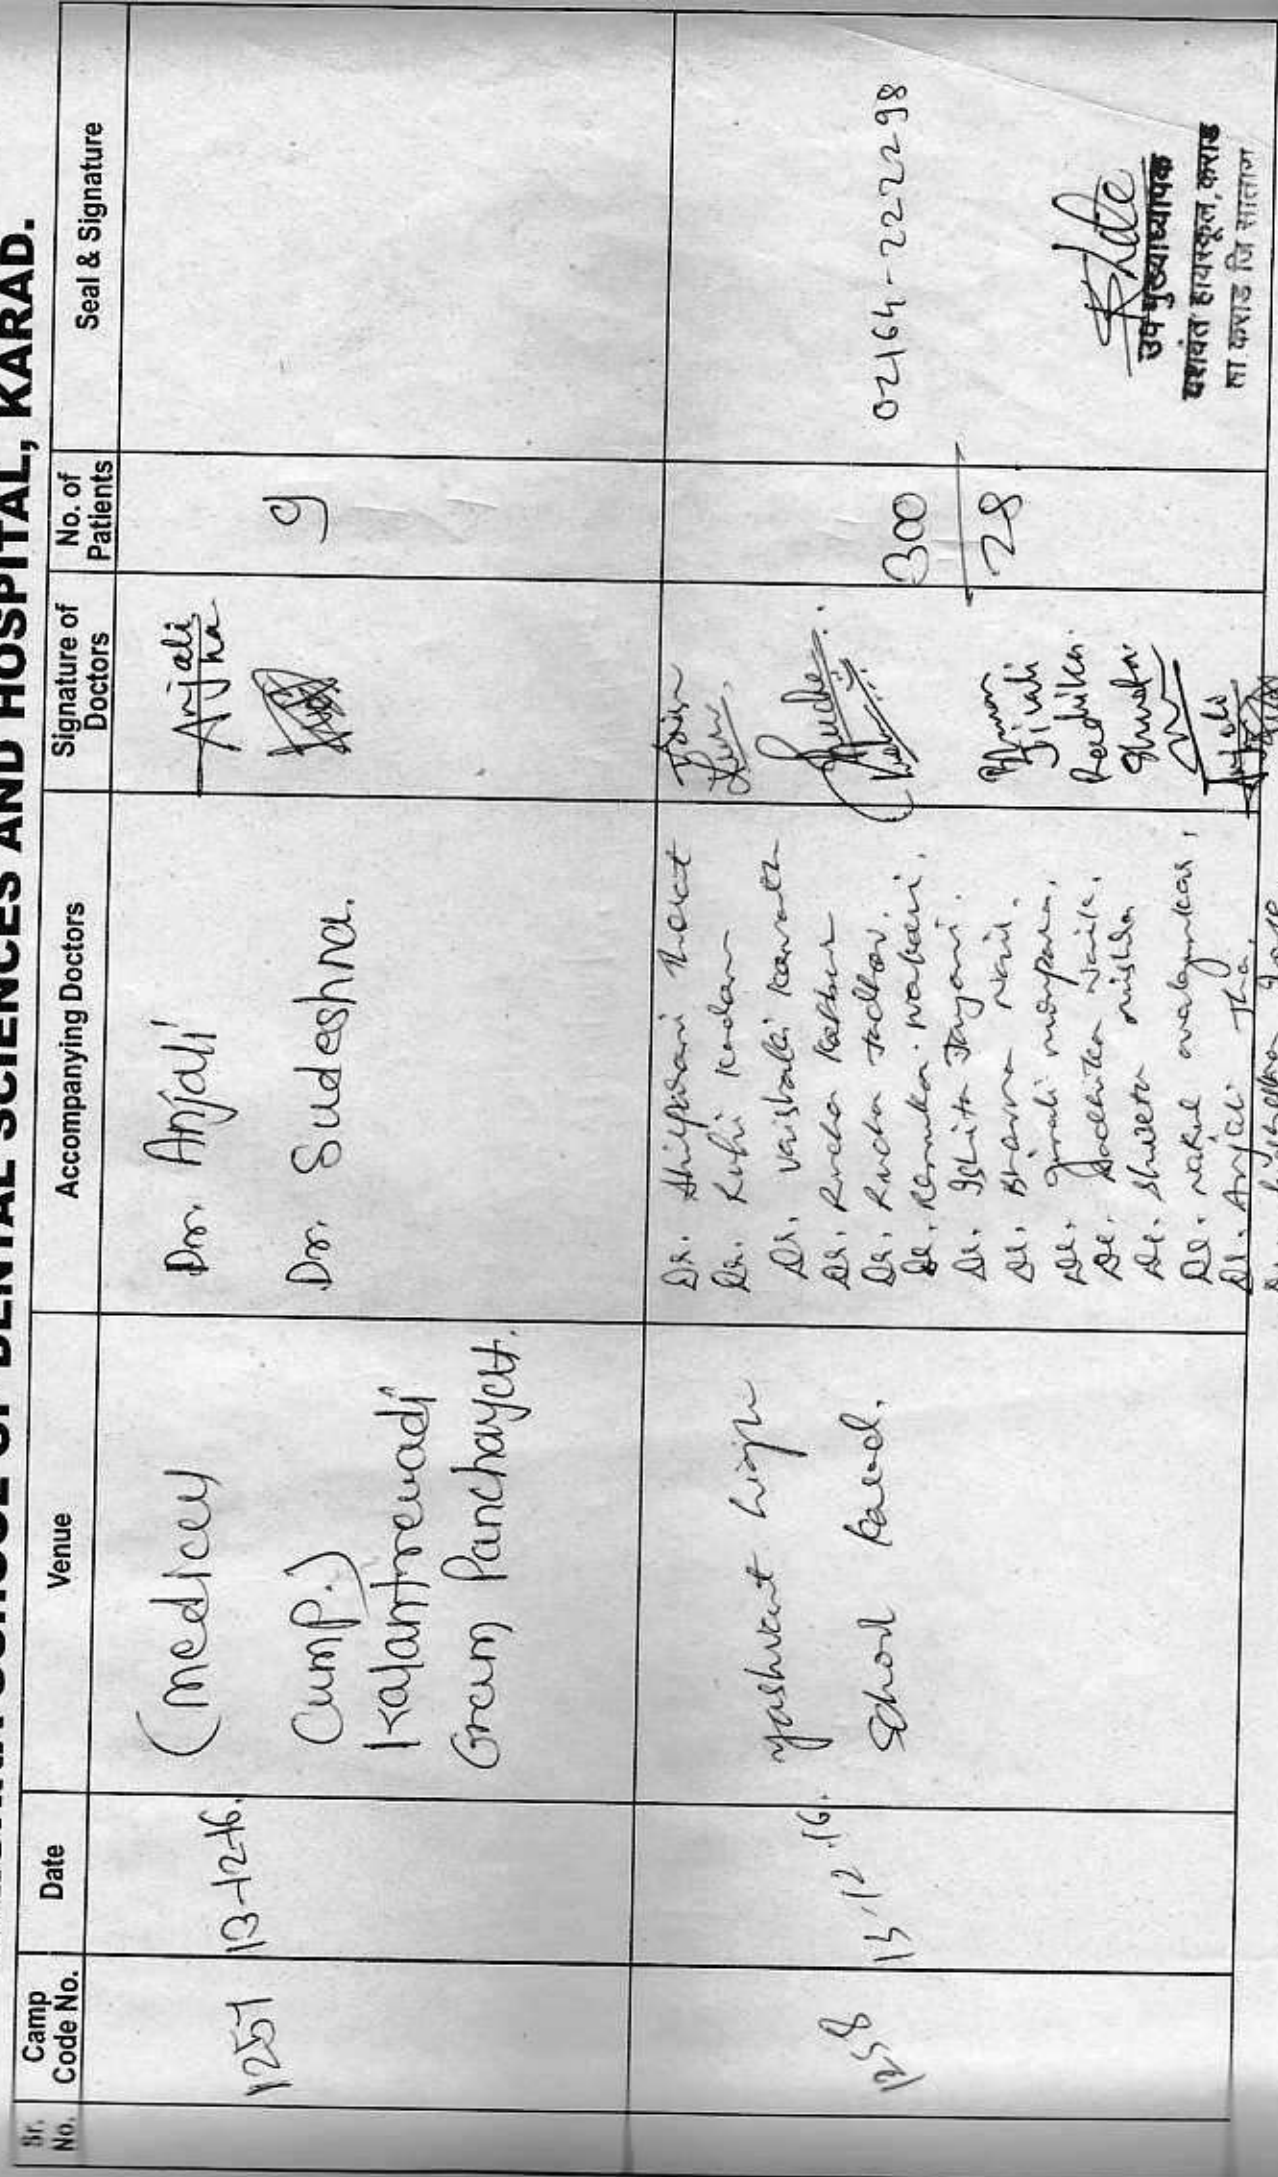 SCHOOL OF DENTAL SCIENCES AND HOSPITAL, KARAD.
Sr. No.
Camp Code No.
Date
Venue
Acccompanying Doctors
Signature of Doctors
No. of Patients
Seal & Signature
1257
13-12-16.
(Medical
Camp.)
Kalantrewadi
Gram Panchayat.
Dr. Anjali
Dr. Sudeshna.
Anjali
Jha
9
1258
15.12.16.
Yashvant high
School Karad.
Dr. Shilparani Thorat
Dr. Ruhi Kadam
Dr. Vaishali
Dr. Rucha
Dr. Rucha Jadhav.
Dr. Renuka
Dr. Ishita Jayani.
Dr. Bhavna Naik.
Dr. Jinali
Dr. Radhika Naik.
Dr. Shweta Mishra
Dr. Nakul
Dr. Anjali Jha.
Jinali
Radhika
Shweta
Anjali
300
28
02164-222298
उपमुख्याध्यापक
यशवंत हायस्कूल, कराड
ता कराड जि सातारा